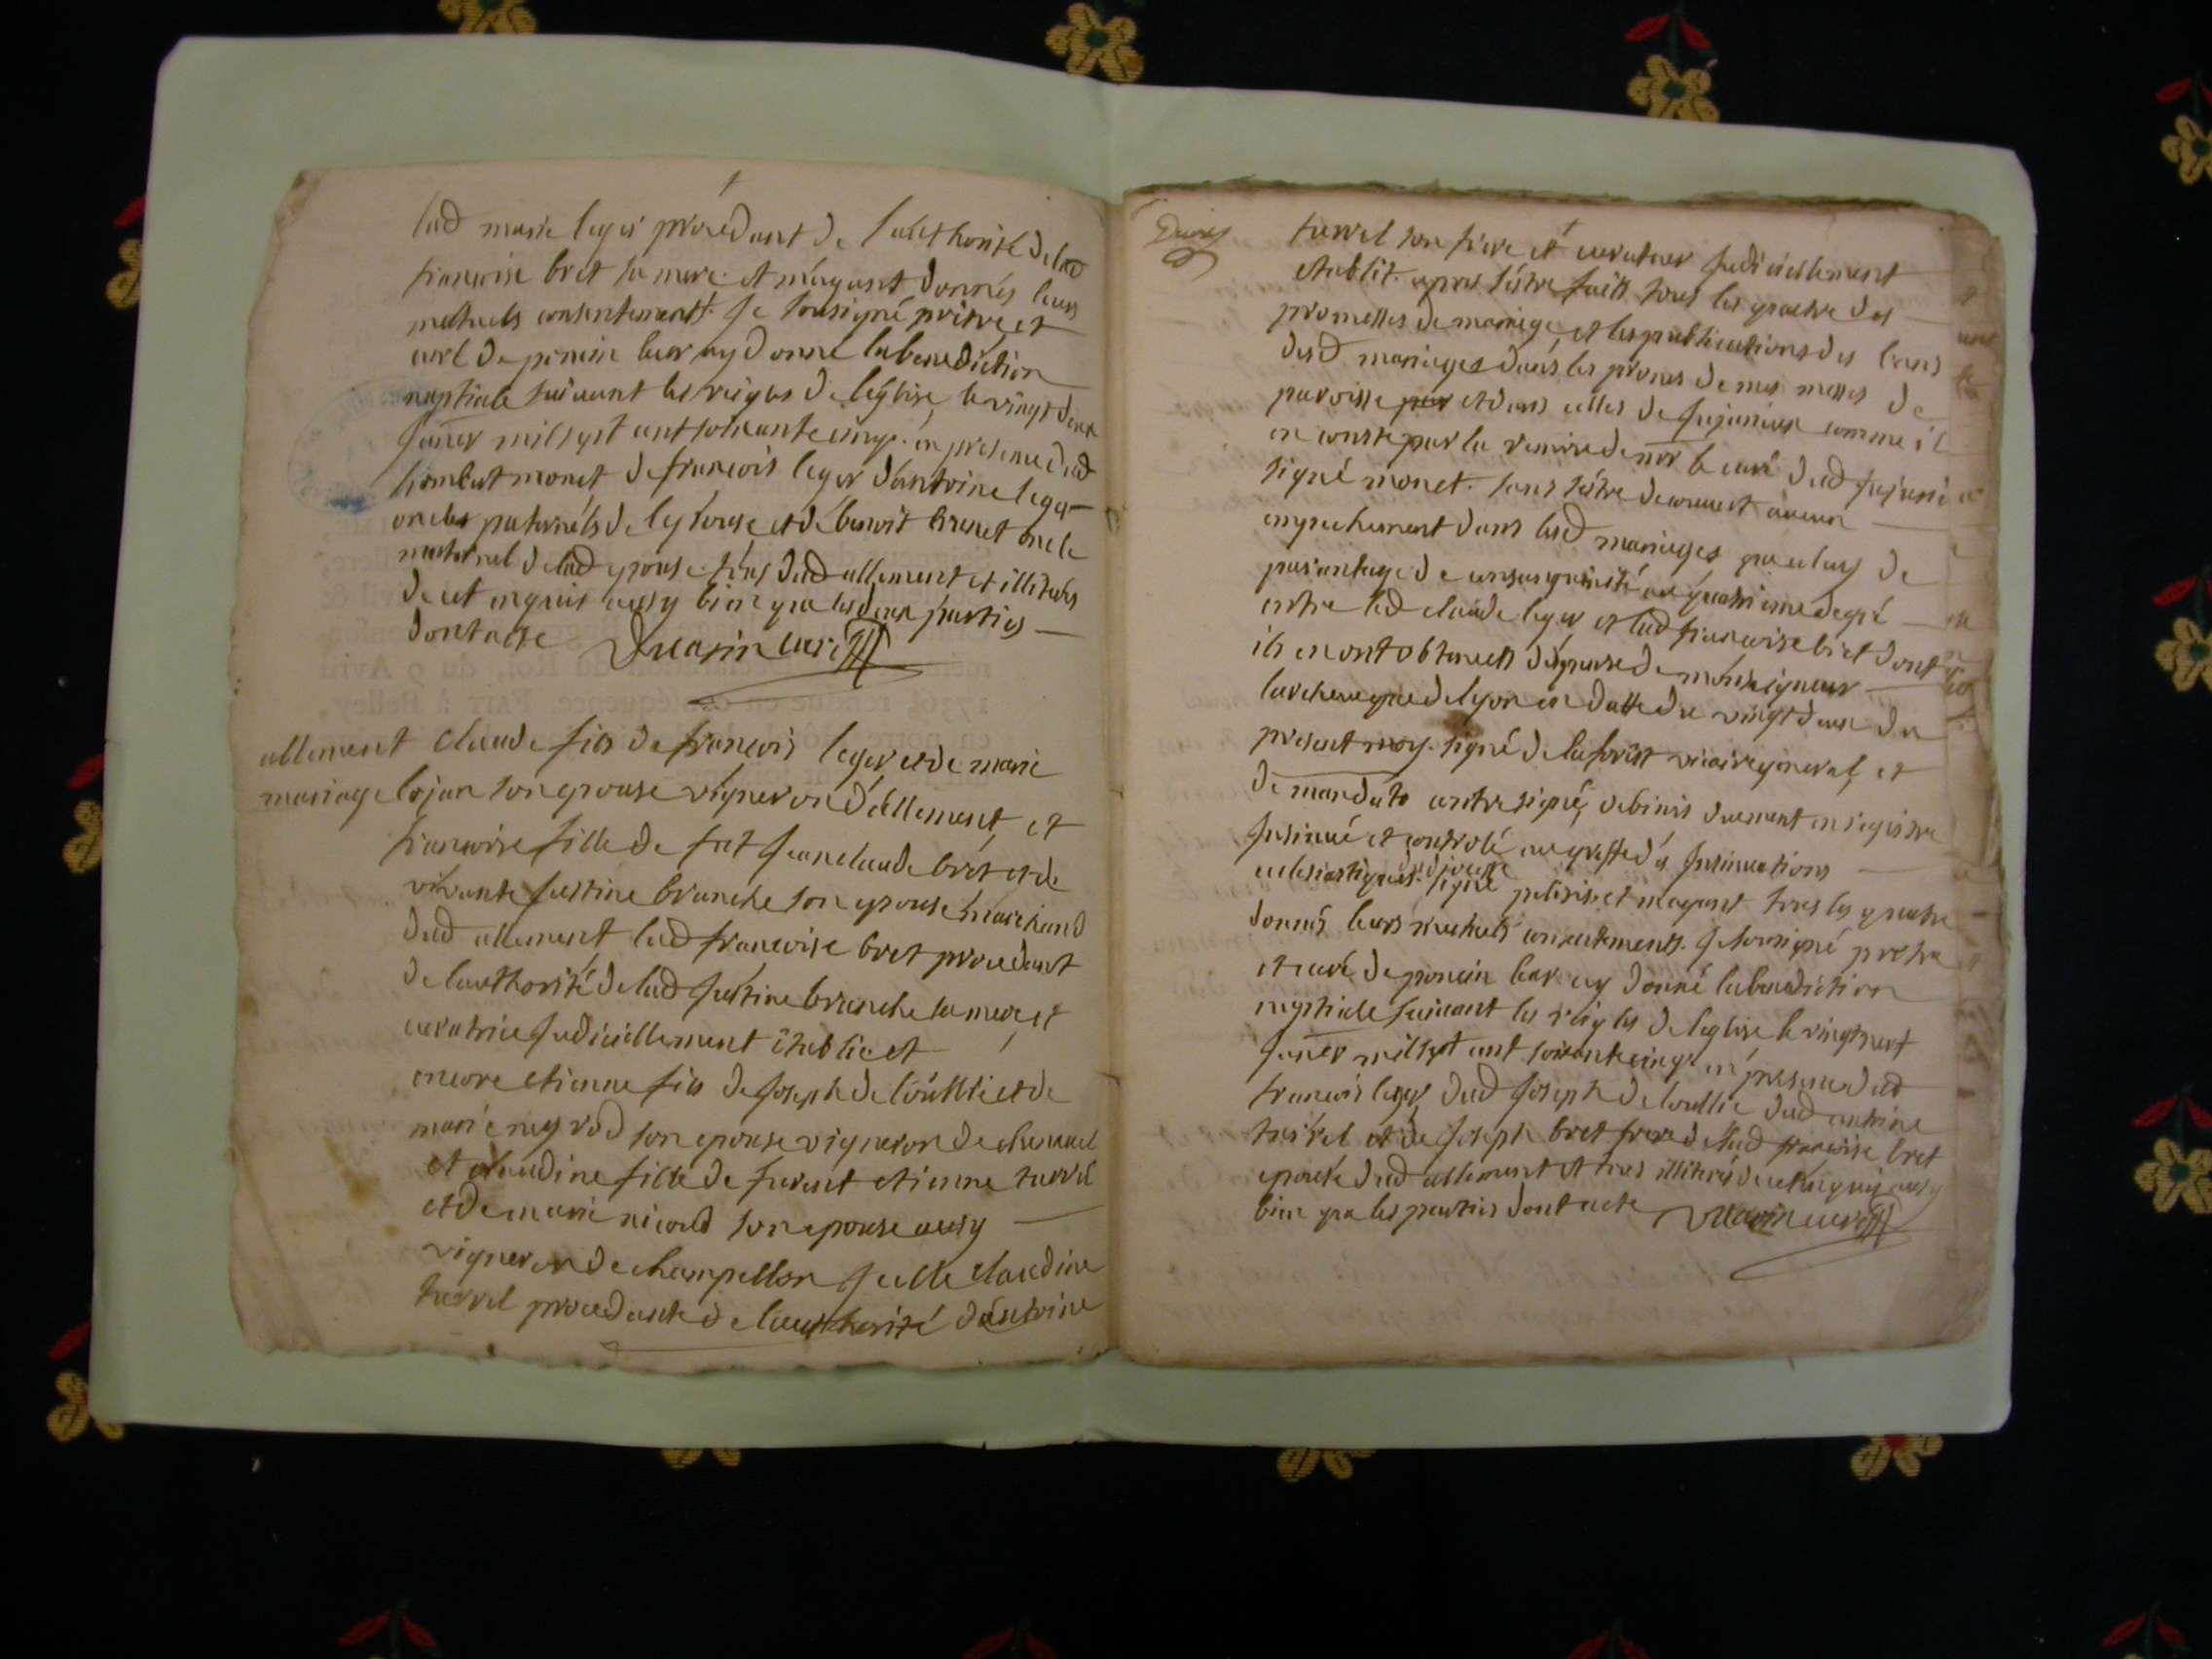 lad marie leger procedant de lauthorité delad
francoise bret sa mere et m'ayant donnés leurs
mutuels consentements. Je soussigné prêtre et
curé de poncin leur ay donné la benediction
nuptiale suivant les reigles de leglise, le vingt deux
janer mil sept cent soixante cinq. en presence dud
humbert monet de francois leger d'antoine leger
oncles paternels de lepouse et de benoit brunet oncle
maternel de lad epouse. tous dud allement et illiterés
de cet enquis aussy bien que les deux parties
dont acte Ducarin curé
allement
mariage
claude fils de francois leger et de marie
lojan son epouse vigneron d'allement, et
francoise fille de fut jeanclaude bret et de
vivante justine branche son epouse marchand
dud allement lad francoise bret procedant
de lauthorité de lad justine branche sa mere et
curatrice judiciellement établie et
encore etienne fils de joseph de loullie et de
marie neyrod son epouse vigneron de chenavel
et claudine fille de furent etienne turrel
et de marie nicoud son epouse aussy
vigneron de champellon icelle claudine
turrel procedante de lauthorité d'antoine
turrel son frere et curateur judiciellement
etablit. apres s'être faits tous les quatre des
promesses de mariage, et les publications des bans
desd mariages dans les prones de mes messes de
paroisse et dans celles de jujurieux comme il
en conste par la remise de mr le curé dud jujuri
signé monet. sans s'être decouvert aucun
empechement dans lesd mariages que celuy de
parantage de consanguinité au quatrieme degré
entre led claude leger et lad francoise bret dont
ils en ont obtenus dispense de monseigneur
larcheveque de lyon en datte du vingt deux du
present moy. signé de la forest vicaire general, et
de mandato contresigné, debinis duement enregistre
insinué et controlé au greffe des insinuations
eclesiastiques. signé et mayant tous les quatre
donnés leurs mutuels consentements. je soussigné prêtre
et curé de poncin leur ay donné la benediction
nuptiale suivant les reigles de leglise le vingt neuf
janer mil sept cent soixante cinq en presence dud
francois leger, dud joseph de loullie dud antoine
turrel et de joseph bret frere de lad francoise bret
epouse dud allement et tous illiterés de cet enquis aussy
bien que les parties dont acte Ducarin curé